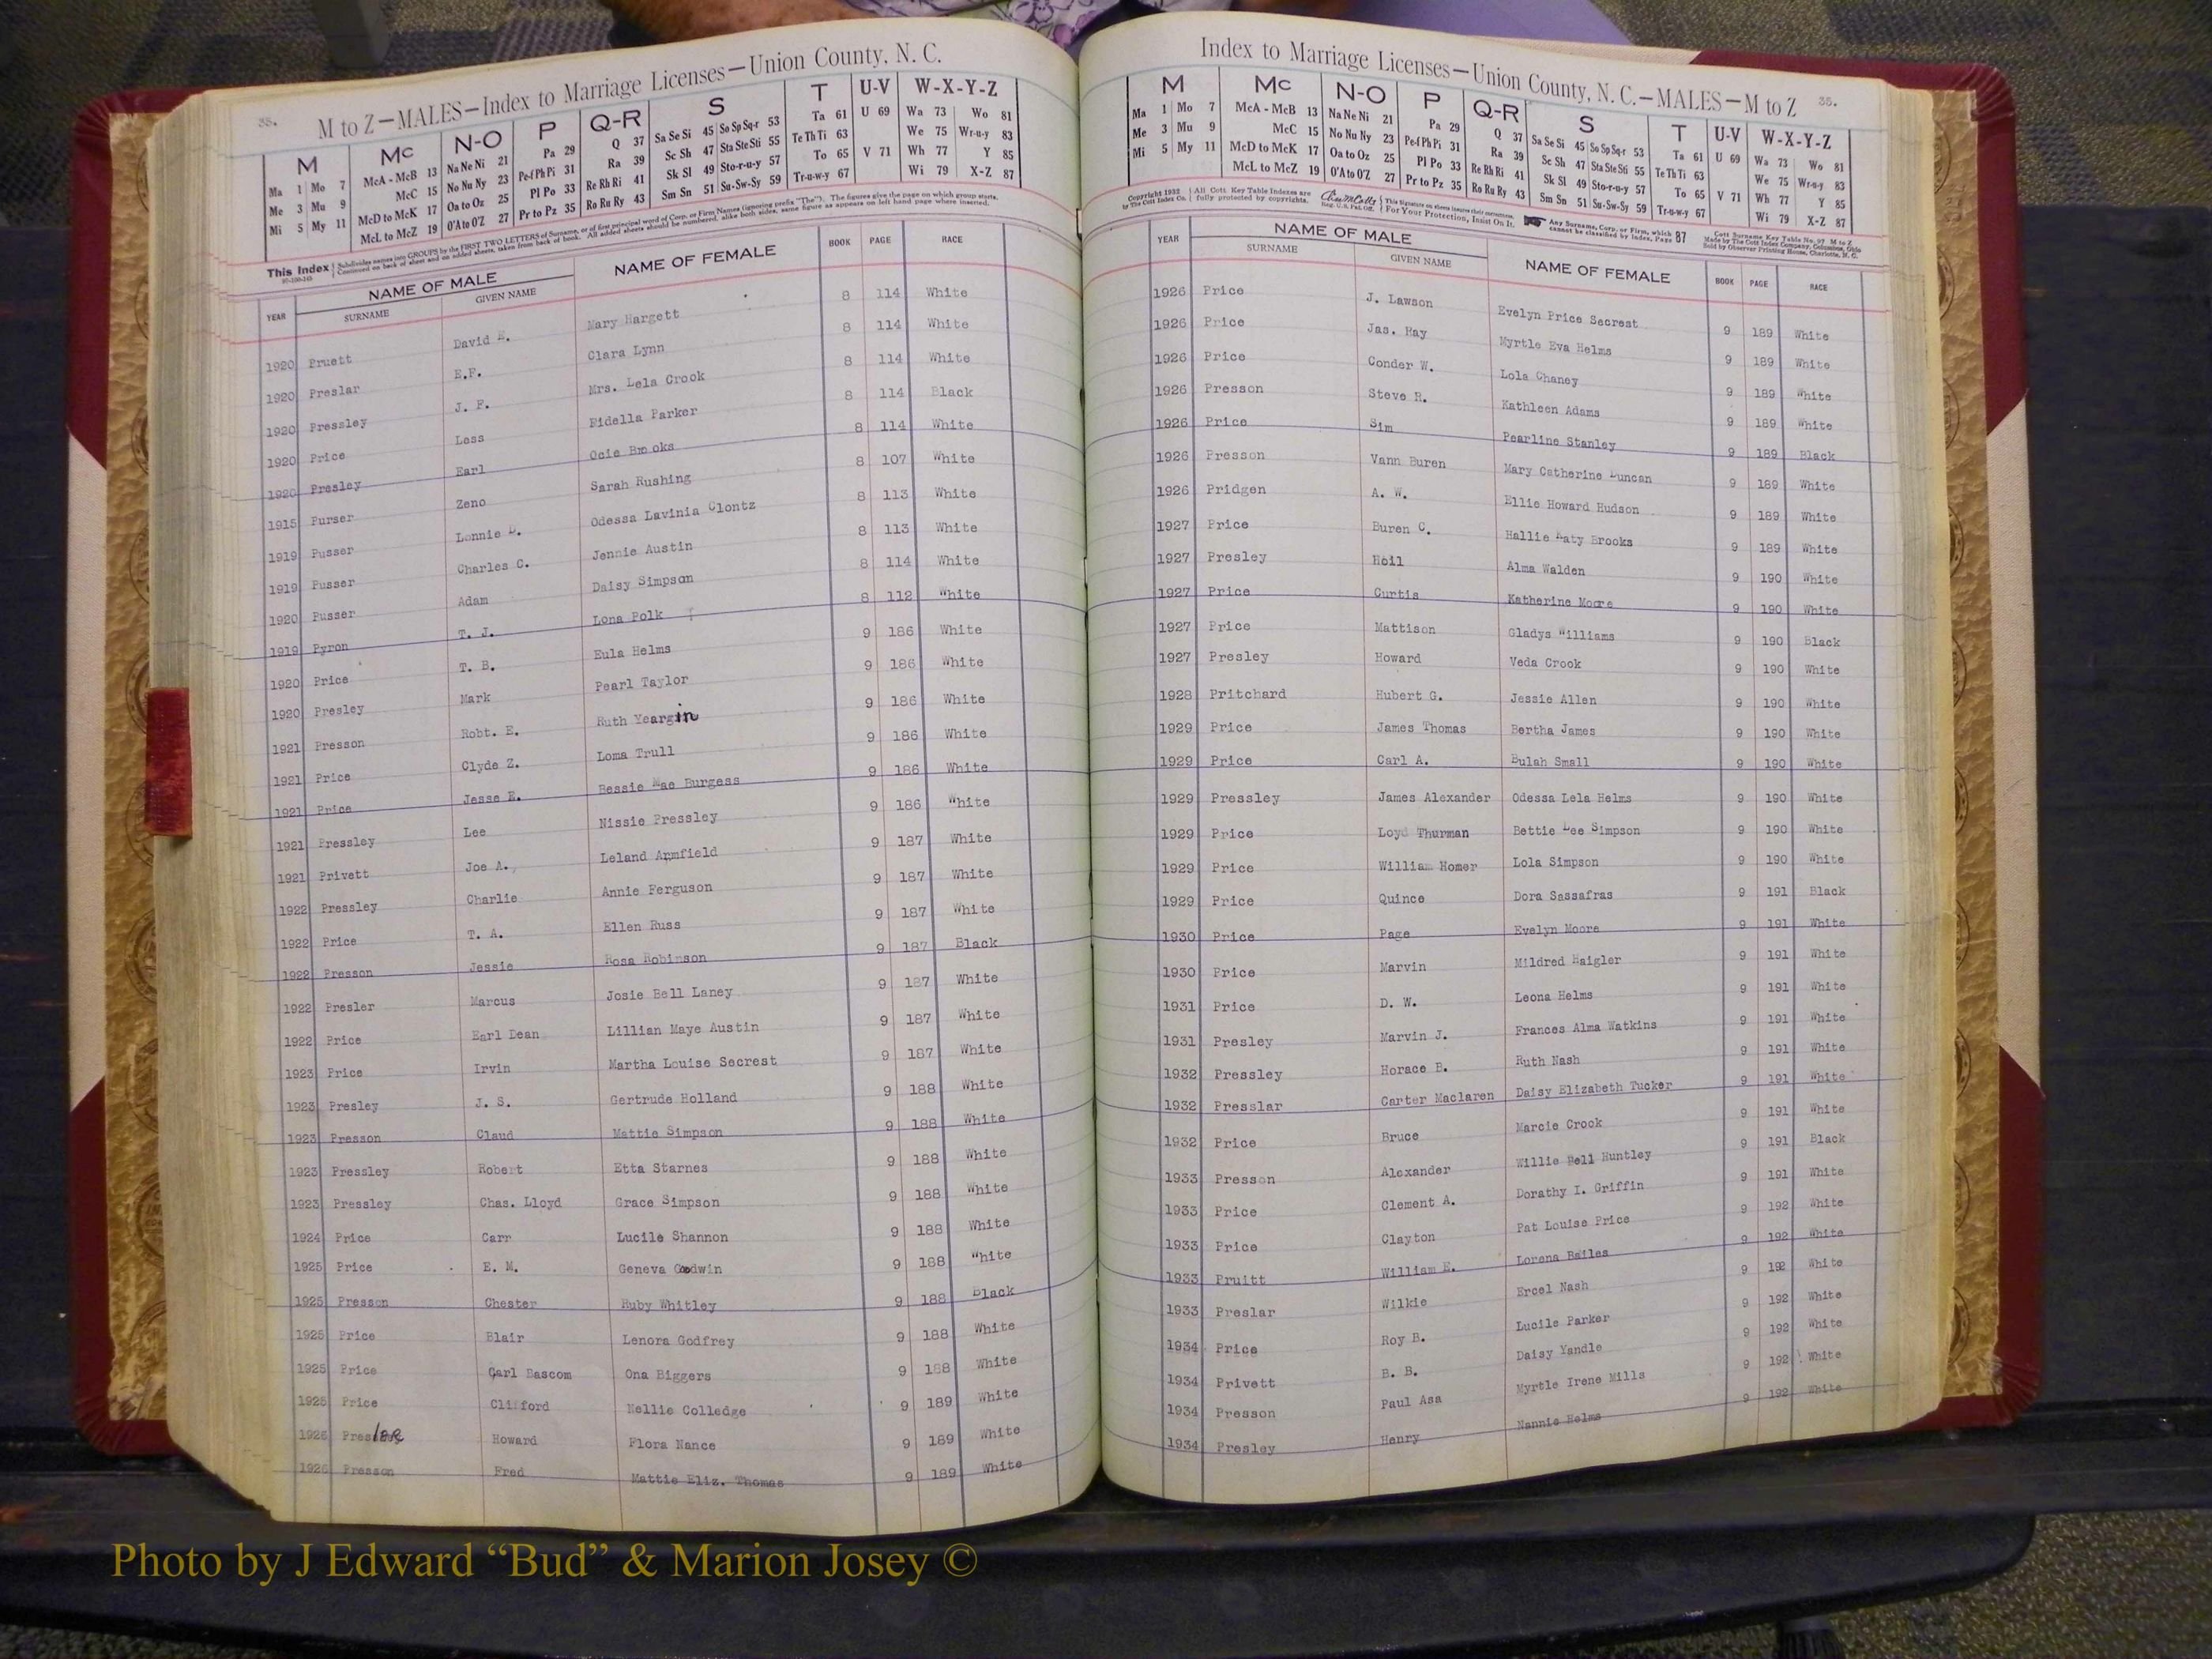 35.
M to Z—MALES—Index to Marriage Licenses—Union County, N. C.
M Mc N-O P Q-R S T U-V W-X-Y-Z
Ma 1 Mo 7 McA - McB 13 Na Ne Ni 21 Pa 29 Q 37 Sa Se Si 45 So Sp Sq-r 53 Ta 61 U 69 Wa 73 Wo 81
Me 3 Mu 9 McC 15 No Nu Ny 23 Pe-f Ph Pi 31 Ra 39 Sc Sh 47 Sta Ste Sti 55 Te Th Ti 63 We 75 Wr-u-y 83
Mi 5 My 11 McD to McK 17 Oa to Oz 25 Pl Po 33 Re Rh Ri 41 Sk Sl 49 Sto-r-u-y 57 To 65 V 71 Wh 77 Y 85
McL to McZ 19 O'A to O'Z 27 Pr to Pz 35 Ro Ru Ry 43 Sm Sn 51 Su-Sw-Sy 59 Tr-u-w-y 67 Wi 79 X-Z 87
This Index { Subdivides names into GROUPS by the FIRST TWO LETTERS of Surname, or of first principal word of Corp. or Firm Names (ignoring prefix "The"). The figures give the page on which group starts.
Continued on back of sheet and on added sheets, taken from back of book. All added sheets should be numbered, alike both sides, same figure as appears on left hand page where inserted.
YEAR NAME OF MALE NAME OF FEMALE BOOK PAGE RACE
SURNAME GIVEN NAME
1920 Pruett David E. Mary Hargett 8 114 White
1920 Preslar E.F. Clara Lynn 8 114 White
1920 Pressley J. F. Mrs. Lela Crook 8 114 White
1920 Price Less Fidella Parker 8 114 Black
1920 Presley Earl Ocie Brooks 8 114 White
1915 Purser Zeno Sarah Rushing 8 107 White
1919 Pusser Lonnie D. Odessa Lavinia Clontz 8 113 White
1919 Pusser Charles C. Jennie Austin 8 113 White
1920 Pusser Adam Daisy Simpson 8 114 White
1919 Pyron T. J. Lona Polk 8 112 White
1920 Price T. B. Eula Helms 9 186 White
1920 Presley Mark Pearl Taylor 9 186 White
1921 Presson Robt. E. Ruth Yeargin 9 186 White
1921 Price Clyde Z. Loma Trull 9 186 White
1921 Price Jesse E. Bessie Mae Burgess 9 186 White
1921 Pressley Lee Nissie Pressley 9 186 White
1921 Privett Joe A. Leland Armfield 9 187 White
1922 Pressley Charlie Annie Ferguson 9 187 White
1922 Price T. A. Ellen Russ 9 187 White
1922 Presson Jessie Rosa Robinson 9 187 Black
1922 Presler Marcus Josie Bell Laney 9 187 White
1922 Price Earl Dean Lillian Maye Austin 9 187 White
1923 Price Irvin Martha Louise Secrest 9 187 White
1923 Presley J. S. Gertrude Holland 9 188 White
1923 Presson Claud Mattie Simpson 9 188 White
1923 Pressley Robert Etta Starnes 9 188 White
1923 Pressley Chas. Lloyd Grace Simpson 9 188 White
1924 Price Carr Lucile Shannon 9 188 White
1925 Price E. M. Geneva Godwin 9 188 White
1925 Presson Chester Ruby Whitley 9 188 Black
1925 Price Blair Lenora Godfrey 9 188 White
1925 Price Carl Bascom Ona Biggers 9 188 White
1925 Price Clifford Nellie Colledge 9 189 White
1926 Preslar Howard Flora Nance 9 189 White
1926 Presson Fred Mattie Eliz. Thomas 9 189 White
Index to Marriage Licenses—Union County, N. C.—MALES—M to Z 35.
M Mc N-O P Q-R S T U-V W-X-Y-Z
Ma 1 Mo 7 McA - McB 13 Na Ne Ni 21 Pa 29 Q 37 Sa Se Si 45 So Sp Sq-r 53 Ta 61 U 69 Wa 73 Wo 81
Me 3 Mu 9 McC 15 No Nu Ny 23 Pe-f Ph Pi 31 Ra 39 Sc Sh 47 Sta Ste Sti 55 Te Th Ti 63 We 75 Wr-u-y 83
Mi 5 My 11 McD to McK 17 Oa to Oz 25 Pl Po 33 Re Rh Ri 41 Sk Sl 49 Sto-r-u-y 57 To 65 V 71 Wh 77 Y 85
McL to McZ 19 O'A to O'Z 27 Pr to Pz 35 Ro Ru Ry 43 Sm Sn 51 Su-Sw-Sy 59 Tr-u-w-y 67 Wi 79 X-Z 87
Copyright 1932 by The Cott Index Co. { All Cott Key Table Indexes are fully protected by copyrights. Reg. U.S. Pat. Off. { This Signature on sheets insures their correctness. For Your Protection, Insist On It. Any Surname, Corp. or Firm, which cannot be classified by Index, Page 87
Cott Surname Key Table No. 97 M to Z
Made by The Cott Index Company, Columbus, Ohio
Sold by Observer Printing House, Charlotte, N. C.
YEAR NAME OF MALE NAME OF FEMALE BOOK PAGE RACE
SURNAME GIVEN NAME
1926 Price J. Lawson Evelyn Price Secrest 9 189 White
1926 Price Jas. Ray Myrtle Eva Helms 9 189 White
1926 Price Conder W. Lola Chaney 9 189 White
1926 Presson Steve R. Kathleen Adams 9 189 White
1926 Price Sim Pearline Stanley 9 189 Black
1926 Presson Vann Buren Mary Catherine Duncan 9 189 White
1926 Pridgen A. W. Ellie Howard Hudson 9 189 White
1927 Price Buren C. Hallie Baty Brooks 9 189 White
1927 Presley Hoil Alma Walden 9 190 White
1927 Price Curtis Katherine Moore 9 190 White
1927 Price Mattison Gladys Williams 9 190 Black
1927 Presley Howard Veda Crook 9 190 White
1928 Pritchard Hubert G. Jessie Allen 9 190 White
1929 Price James Thomas Bertha James 9 190 White
1929 Price Carl A. Bulah Small 9 190 White
1929 Pressley James Alexander Odessa Lela Helms 9 190 White
1929 Price Loyd Thurman Bettie Lee Simpson 9 190 White
1929 Price William Homer Lola Simpson 9 190 White
1929 Price Quince Dora Sassafras 9 191 Black
1930 Price Page Evelyn Moore 9 191 White
1930 Price Marvin Mildred Haigler 9 191 White
1931 Price D. W. Leona Helms 9 191 White
1931 Presley Marvin J. Frances Alma Watkins 9 191 White
1932 Pressley Horace B. Ruth Nash 9 191 White
1932 Presslar Carter Maclaren Daisy Elizabeth Tucker 9 191 White
1932 Price Bruce Marcie Crook 9 191 White
1933 Presson Alexander Willie Bell Huntley 9 191 Black
1933 Price Clement A. Dorathy I. Griffin 9 191 White
1933 Price Clayton Pat Louise Price 9 192 White
1933 Pruitt William E. Lorena Bailes 9 192 White
1933 Preslar Wilkie Ercel Nash 9 192 White
1934 Price Roy B. Lucile Parker 9 192 White
1934 Privett B. B. Daisy Yandle 9 192 White
1934 Presson Paul Asa Myrtle Irene Mills 9 192 White
1934 Presley Henry Nannie Helms 9 192 White
Photo by J Edward “Bud” & Marion Josey ©